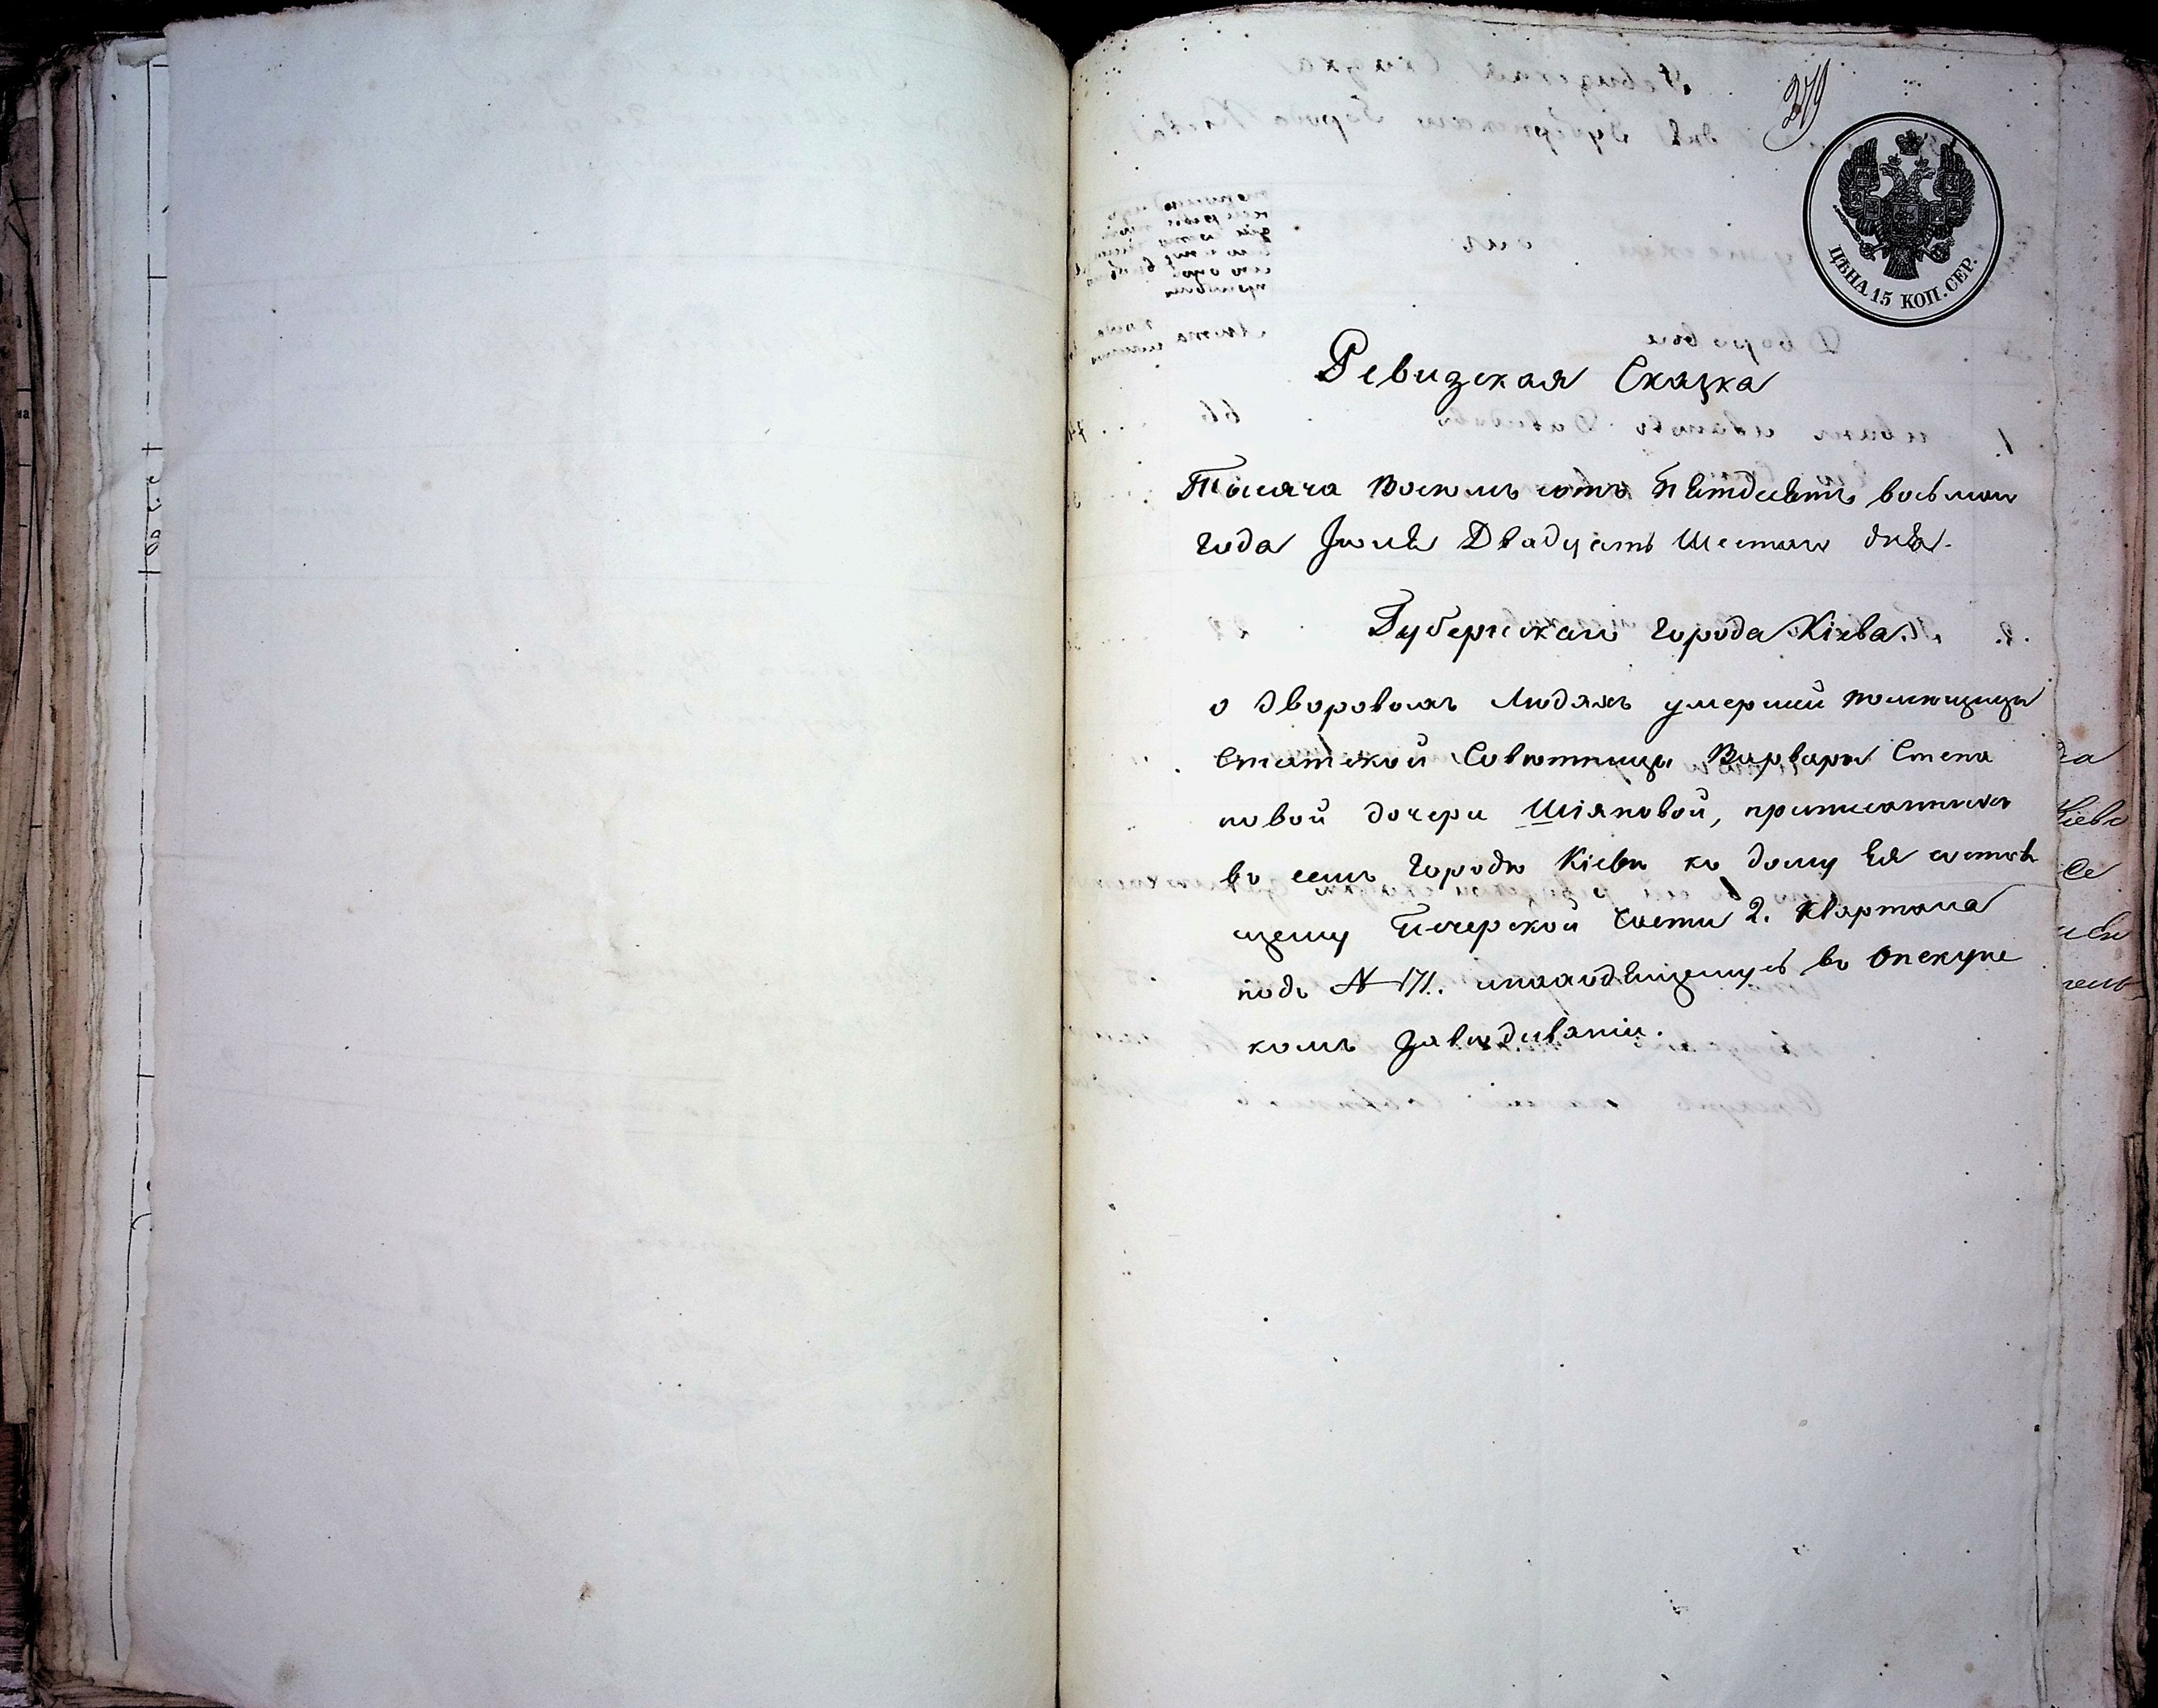 ЦѢНА 15 КОП. СЕР.
Ревизская Сказка
Тысяча Восемь сотъ Пятдесятъ восьмаго
года Іюля Двадцать Шестаго дня.
Губернскаго города Кіева.
о дворовыхъ людяхъ умершей помещицы
Статской Совѣтницы Варвары Степа
новой дочери Шіяновой, приписанныхъ
въ семъ городѣ Кіевѣ къ дому ея состоя
щему Печерской части 2. Квартала
подъ № 171. инаходящемусъ въ Опекунс
комъ Завѣдиваніи.